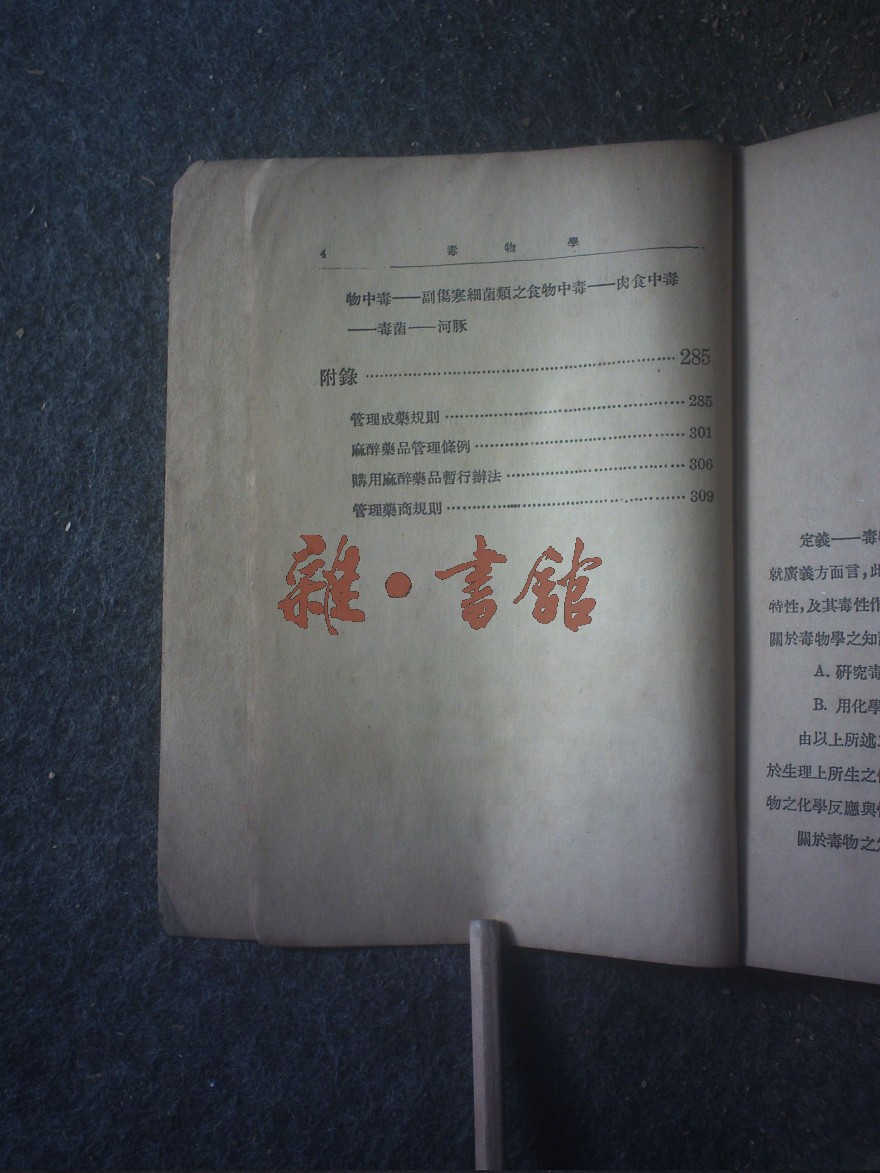 4 毒物學
物中毒——副傷寒細菌類之食物中毒——肉食中毒
——毒菌——河豚
附錄……285
管理成藥規則……285
麻醉藥品管理條例……301
購用麻醉藥品暫行辦法……306
管理藥商規則……309
雜·書館
定義——毒
就廣義方面言,此
特性,及其毒性作
關於毒物學之知
A. 研究毒
B. 用化學
由以上所述
於生理上所生之
物之化學反應與
關於毒物之